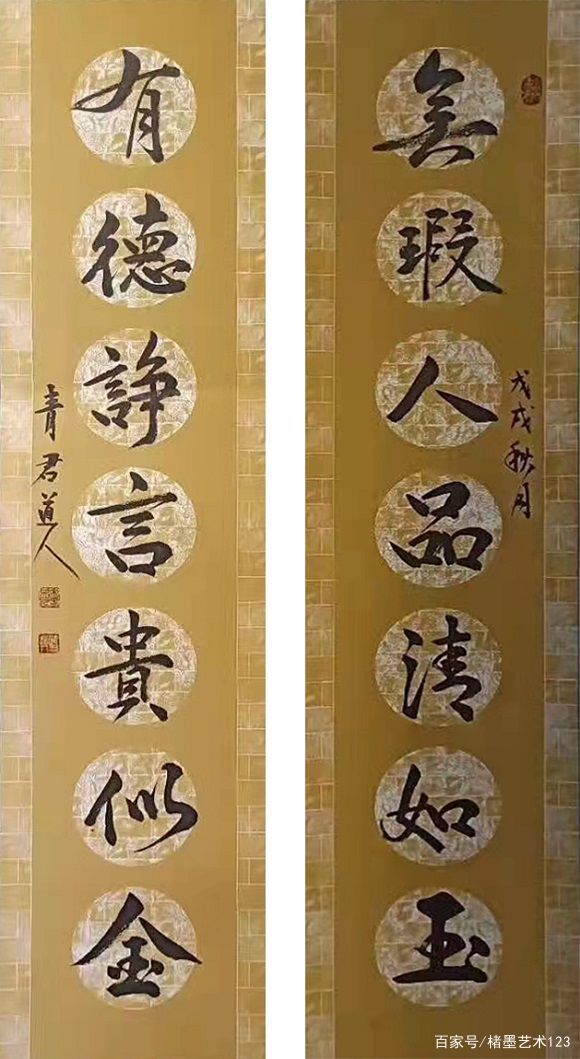 戊戌秋月
無瑕人品清如玉
有德諍言貴似金
青君道人
百家号/楮墨艺术123